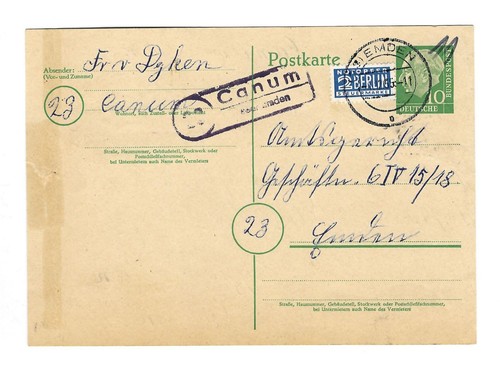 Absender:
(Vor- und Zuname)
Fr v Dyken
23
Canum
Wohnort, auch Zustell- oder Leitpostamt
Straße, Hausnummer, Gebäudeteil, Stockwerk oder
Postschließfachnummer,
bei Untermietern auch Name des Vermieters
Canum
Emden
Postkarte
EMDEN
NOTOPFER
2 BERLIN
STEUERMARKE
DEUTSCHE
BUNDESPOST
10
Amtsgericht
Geschäftsn. 6 IV 15/18
23
Emden
Straße, Hausnummer, Gebäudeteil, Stockwerk oder Postschließfachnummer,
bei Untermietern auch Name des Vermieters